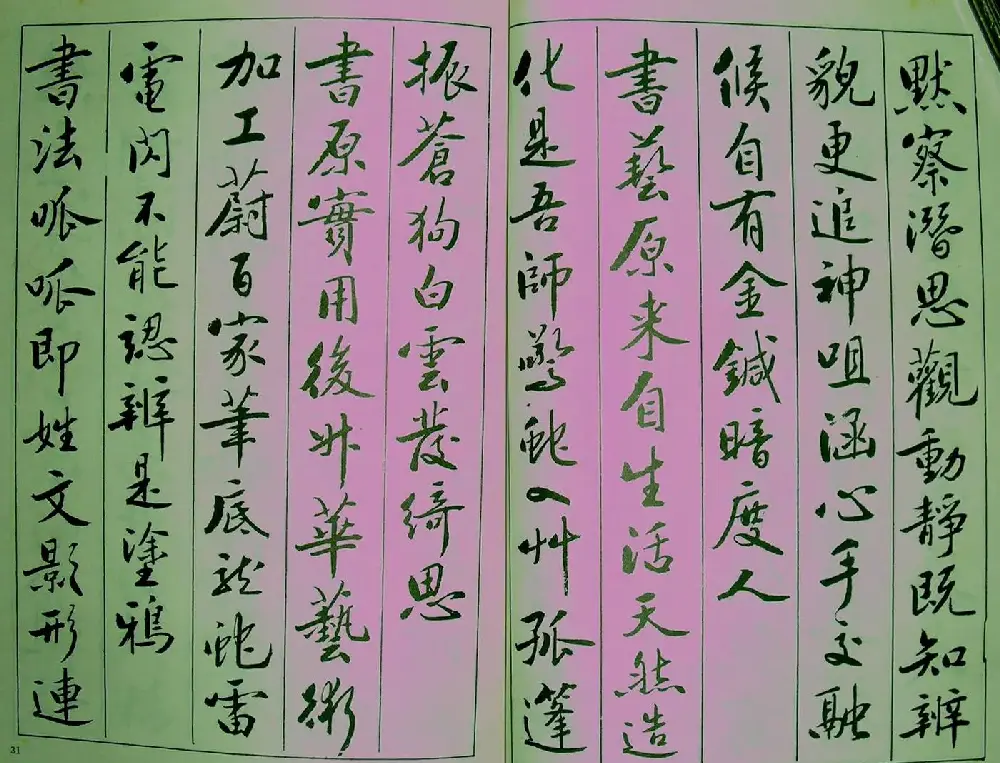 默察潛思觀動靜既知辨
貌更追神咀涵心手交融
候自有金鍼暗度人
書藝原来自生活天然造
化是吾師驚蛇入艸孤蓬
振蒼狗白雲發綺思
書原實用後升華藝術
加工蔚百家筆底龍蛇雷
電閃不能認辨是塗鴉
書法呱呱即姓文影形連
31